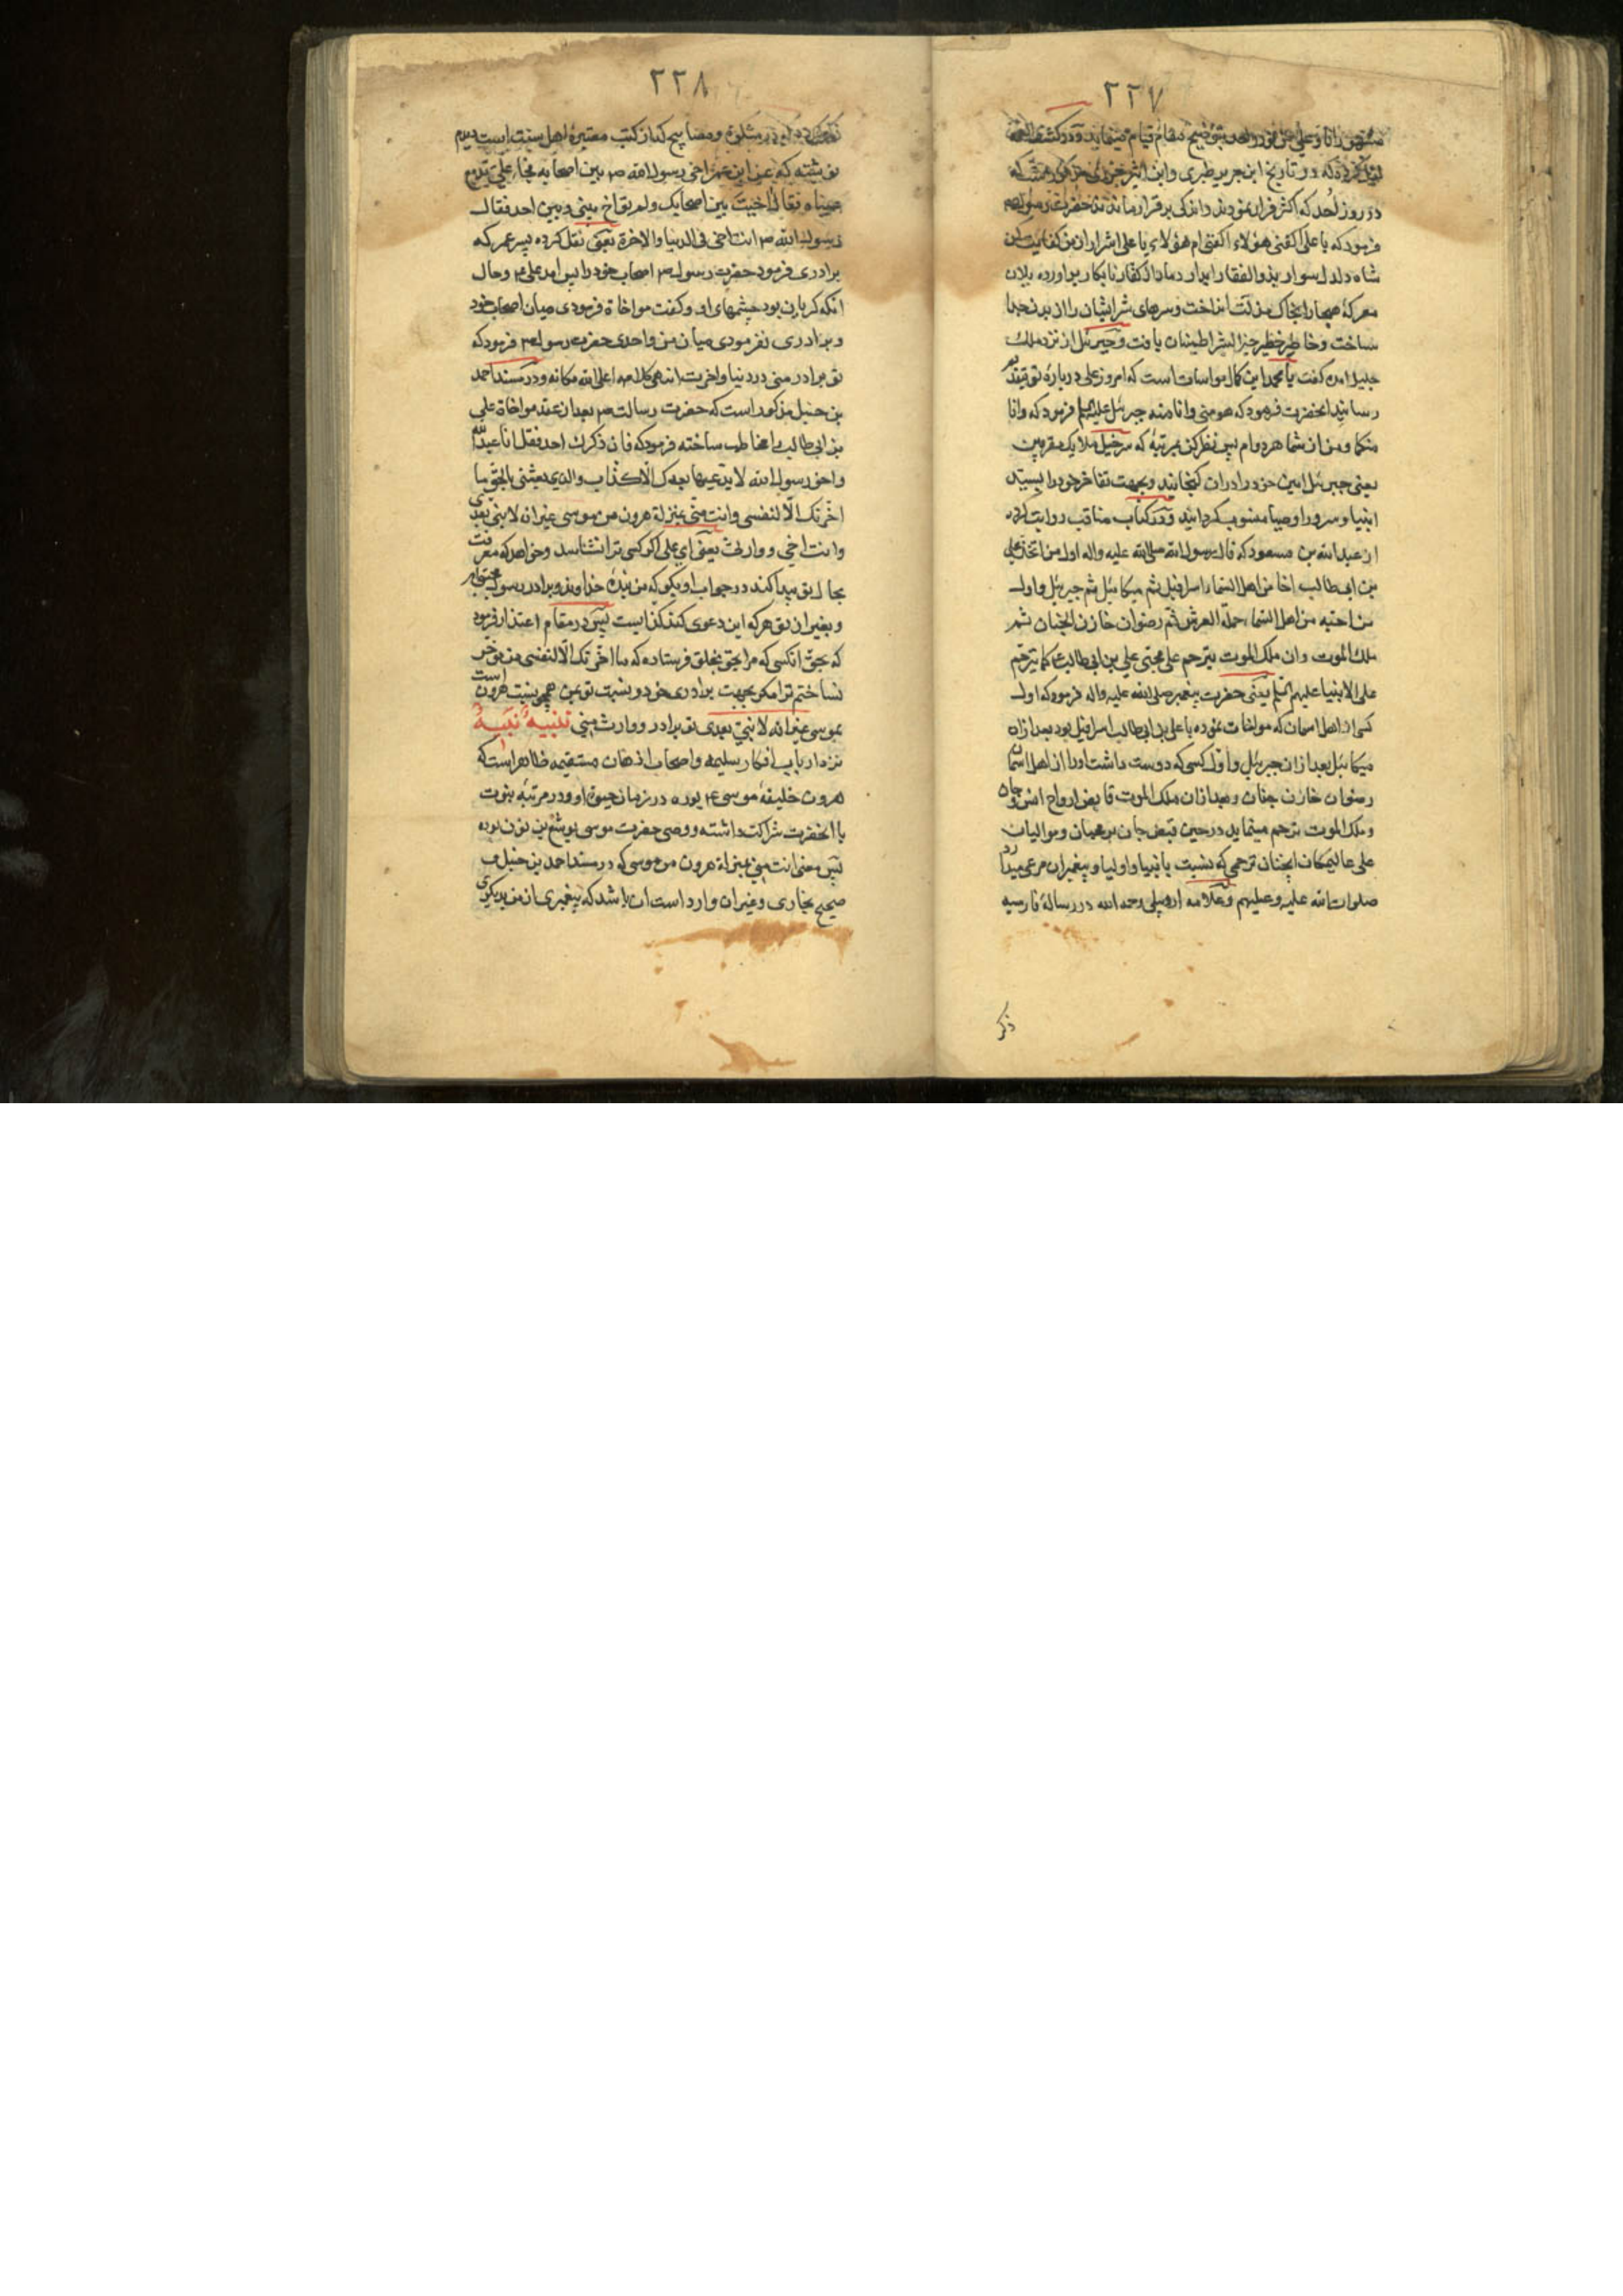 ۲۲۷
در روز احد که اکثر فرار نمودند واندکی برقرار ماندند حضرت رسول ص
فرمود که یا علی اکفنی هؤلاء اکفنی ام هؤلاء یا علی اشرار از من کفایت کن
شاه دلدل سوار بذوالفقار ابدار دمار از کفار نابکار براورده یلان
معرکه هیجا را بخاک مذلت انداخت وسرهای شرایشان را از بدن جدا
ساخت وخاطر خطیر خیر البشر اطمینان یافت وجبرئیل از نزد ملک
جلیل امد کفت یا محمد این کمال مواساتست که امروز علی درباره تو بتقدیم
رسانید انحضرت فرمود که هو منی وانا منه جبرئیل علیه السلم فرمود که وانا
منکما ومن از شما هردوام پس نظر کن بمرتبه که سرخیل ملایک مقربین
یعنی جبرئیل امین خود را دران کنجانید وبجهت تفاخر خود را بسید
انبیا وسرور اوصیا منسوب کردانید ودر کتاب مناقب روایت کرده
از عبدالله بن مسعود که قال رسول الله صلی الله علیه واله اول من اتخذ علی
بن ابی طالب اخا من اهل السماء اسرافیل ثم میکائیل ثم جبرئیل واول
من احبه من اهل السماء حملة العرش ثم رضوان خازن الجنان ثم
ملک الموت وان ملک الموت یترحم علی محبی علی بن ابی طالب ع کما یترحم
علی الانبیا علیهم السلم یعنی حضرت پیغمبر صلی الله علیه واله فرمود که اول
کسی از اهل اسمان که مواخات نموده با علی بن ابی طالب اسرافیل بود بعد ازان
میکائیل بعد ازان جبرئیل واول کسی که دوست داشت اورا از اهل اسمان
رضوان خازن جنان وبعد ازان ملک الموت قابض ارواح انس وجان
وملک الموت ترحم مینماید در حین قبض جان بر محبان وموالیان
علی عالیمکان انچنان ترحمی که بنسبت بانبیا واولیا وپیغمبران مرعی میدارد
صلوات الله علیه وعلیهم وعلامه اردبیلی رحمه الله در رساله فارسیه
ذکر
۲۲۸
در مشکوة ومصابیح که از کتب معتبره اهل سنت است
نوشته که عن ابن عمر اخی رسول الله ص بین اصحابه فجاء علی تدمع
عیناه فقال اخیت بین اصحابک ولم تواخ بینی وبین احد فقال
رسول الله ص انت اخی فی الدنیا والاخرة یعنی نقل کرده پسر عمر که
برادری فرمود حضرت رسول ص اصحاب خود را پس امد علی ع وحال
انکه کریان بود چشمهای او وکفت مواخاة فرمودی میان اصحاب خود
وبرادری نفرمودی میان من واحدی حضرت رسول ص فرمود که
تو برادر منی در دنیا واخرت انتهی کلامه اعلی الله مکانه ودر مسند احمد
بن حنبل مذکور است که حضرت رسالت ص بعد از عقد مواخاة علی
بن ابی طالب را مخاطب ساخته فرمود که فان ذکرک احد فقل انا عبدالله
واخو رسول الله لا یدعیها بعدک الا کذاب والذی بعثنی بالحق ما
اخرتک الا لنفسی وانت منی بمنزلة هرون من موسی غیر انه لا نبی بعدی
وانت اخی ووارثی یعنی ای علی اکر کسی ترا نشناسد وخواهد که معرفت
بحال تو پیدا کند در جواب او بکو که من بنده خداوند وبرادر رسول
وبغیر از تو هر که این دعوی کند کذابست پس در مقام اعتذار فرمود
که بحق انکسی که مرا بحق بخلق فرستاده که ما اخرتک الا لنفسی من موخر
نساختم ترا مکر بجهت برادری خود ونسبت تو بمن همچو نسبت هرون است
بموسی غیر انه لا نبی بعدی تو برادر ووارث منی تنبیه نبیه
نزد ارباب افکار سلیمه واصحاب اذهان مستقیمه ظاهر است که
هرون خلیفه موسی ع بوده در زمان حیوة او ودر مرتبه نبوت
با انحضرت شراکت داشته ووصی حضرت موسی یوشع بن نون بوده
پس معنی انت منی بمنزلة هرون من موسی که در مسند احمد بن حنبل و
صحیح بخاری وغیران وارد است ان باشد که پیغمبری از من بدیکری